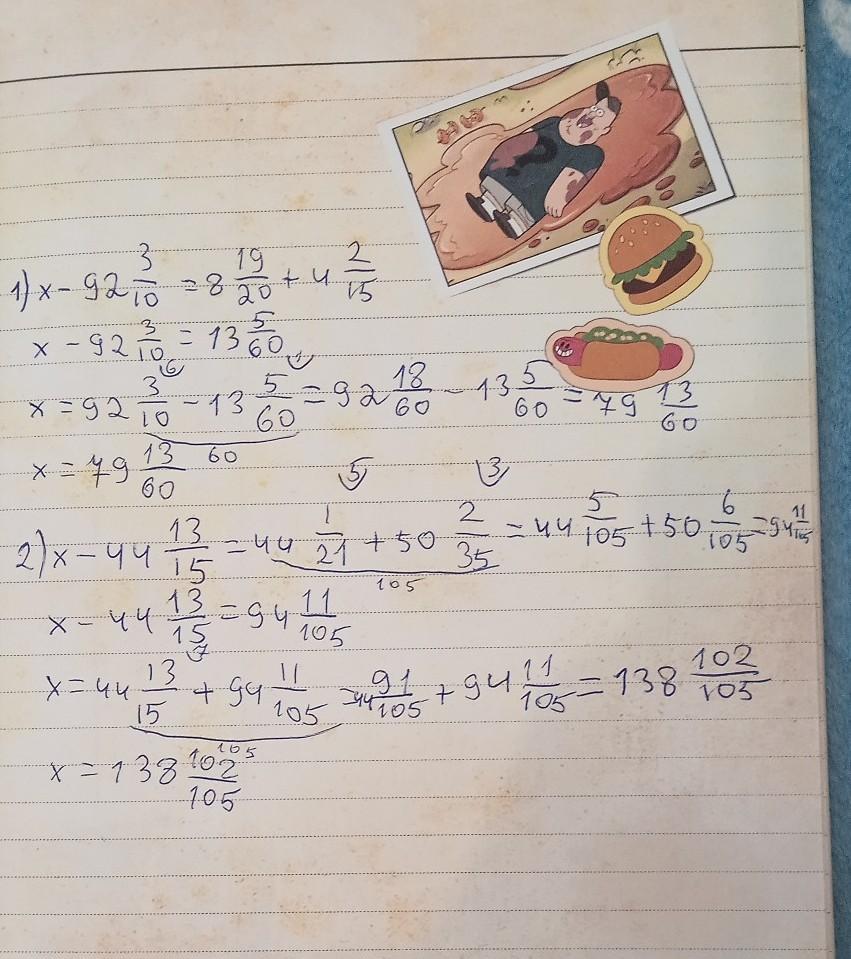 1) x - 92 3/10 = 8 19/20 + 4 2/15
x - 92 3/10 = 13 5/60
6 1
x = 92 3/10 - 13 5/60 = 92 18/60 - 13 5/60 = 79 13/60
60
x = 79 13/60
5 3
2) x - 44 13/15 = 44 1/21 + 50 2/35 = 44 5/105 + 50 6/105 = 94 11/105
105
x - 44 13/15 = 94 11/105
7
x = 44 13/15 + 94 11/105 = 44 91/105 + 94 11/105 = 138 102/105
105
x = 138 102/105